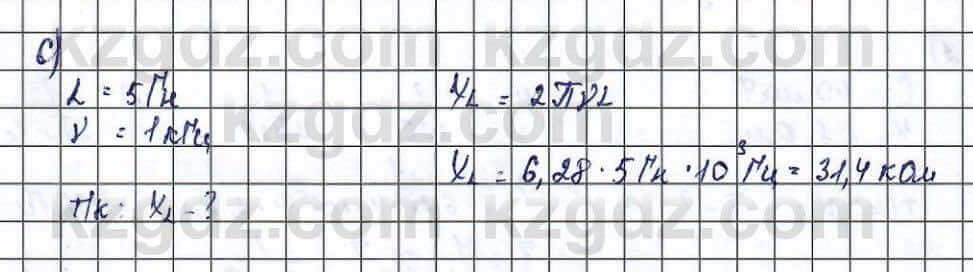 c)
L = 5 Гн
γ = 1 кГц
Тк: X_L - ?
X_L = 2πγL
X_L = 6,28 · 5 Гн · 10³ Гц = 31,4 кОм
kzgdz.com kzgdz.com
kzgdz.com kzgdz.com
kzgdz.com kzgdz.com